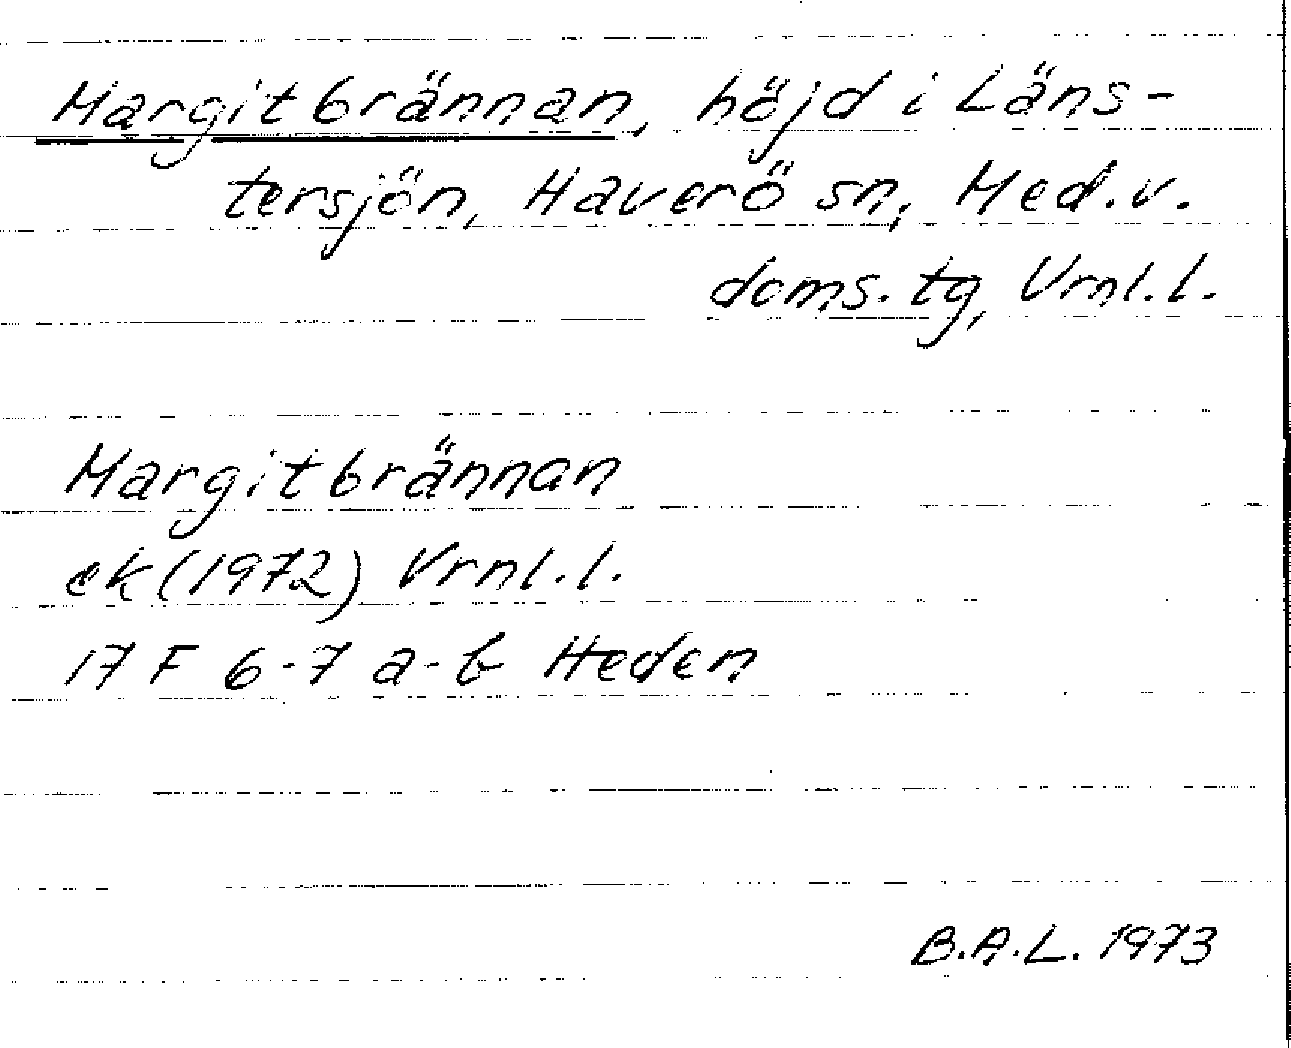 Margitbrännan, höjd i Läns-
tersjön, Haverö sn, Med.v.
doms.tg, Vrnl.l.
Margitbrännan
ek (1972) Vrnl.l.
17 F 6-7 a-b Heden
B.A.L. 1973